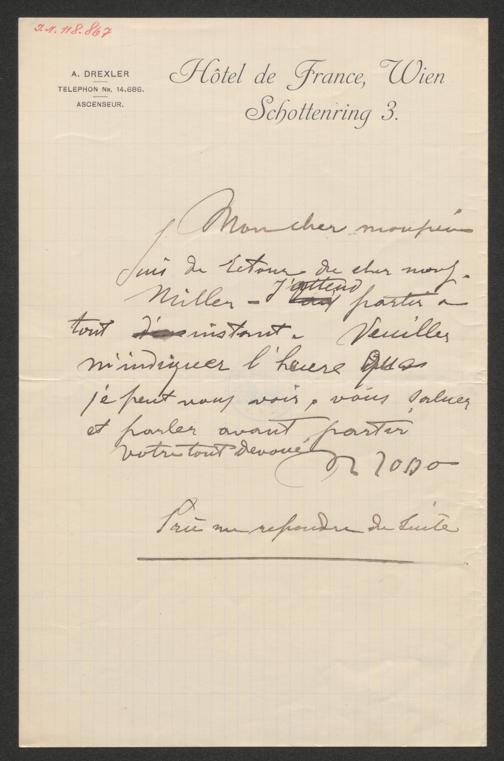 I.N. 118.867
A. DREXLER
TELEPHON NR. 14.686.
ASCENSEUR.
Hôtel de France, Wien
Schottenring 3.
Mon cher
Suis de retour de cher
Miller – J'attend partir a
tout instant. Veuillez
m'indiquer l'heure que
je peut vous voir, vous saluer
et parler avant partir
votre tout devoué
Prie me repondre de suite